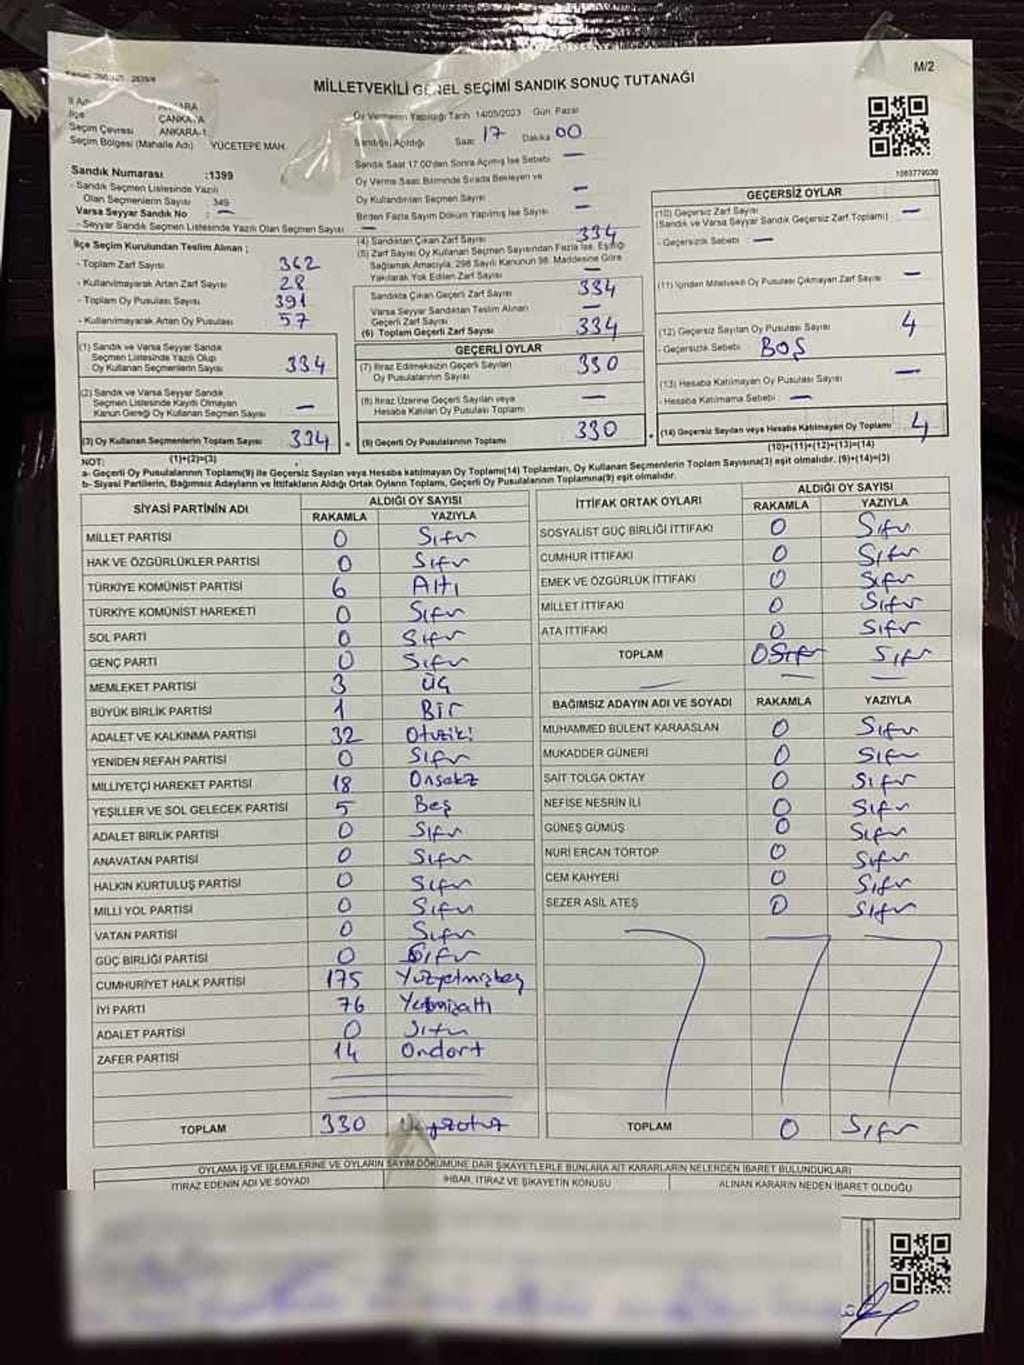 M/2
MİLLETVEKİLİ GENEL SEÇİMİ SANDIK SONUÇ TUTANAĞI
İl Adı : ANKARA
İlçe ÇANKAYA
Seçim Çevresi ANKARA-1
Seçim Bölgesi (Mahalle Adı) YÜCETEPE MAH.
Oy Vermenin Yapıldığı Tarih 14/05/2023 Gün: Pazar
Sandığın Açıldığı Saat 17 Dakika 00
Sandık Saat 17.00'den Sonra Açılmış İse Sebebi —
Oy Verme Saat Bitiminde Sırada Bekleyen ve
Oy Kullandırılan Seçmen Sayısı —
Birden Fazla Sayım Döküm Yapılmış İse Sayısı —
1083779030
Sandık Numarası :1399
- Sandık Seçmen Listesinde Yazılı
Olan Seçmenlerin Sayısı 349
Varsa Seyyar Sandık No : —
- Seyyar Sandık Seçmen Listesinde Yazılı Olan Seçmen Sayısı —
İlçe Seçim Kurulundan Teslim Alınan ;
- Toplam Zarf Sayısı 362
- Kullanılmayarak Artan Zarf Sayısı 28
- Toplam Oy Pusulası Sayısı 391
- Kullanılmayarak Artan Oy Pusulası 57
(1) Sandık ve Varsa Seyyar Sandık
Seçmen Listesinde Yazılı Olup
Oy Kullanan Seçmenlerin Sayısı 334
(2) Sandık ve Varsa Seyyar Sandık
Seçmen Listesinde Kaydı Olmayan
Kanun Gereği Oy Kullanan Seçmen Sayısı —
(3) Oy Kullanan Seçmenlerin Toplam Sayısı 334
(1)+(2)=(3)
(4) Sandıktan Çıkan Zarf Sayısı 334
(5) Zarf Sayısı Oy Kullanan Seçmen Sayısından Fazla İse, Eşitliği
Sağlamak Amacıyla, 298 Sayılı Kanunun 98. Maddesine Göre
Yakılarak Yok Edilen Zarf Sayısı —
Sandıkta Çıkan Geçerli Zarf Sayısı 334
Varsa Seyyar Sandıktan Teslim Alınan
Geçerli Zarf Sayısı —
(6) Toplam Geçerli Zarf Sayısı 334
GEÇERLİ OYLAR
(7) İtiraz Edilmeksizin Geçerli Sayılan
Oy Pusulalarının Sayısı 330
(8) İtiraz Üzerine Geçerli Sayılan veya
Hesaba Katılan Oy Pusulası Toplamı —
(9) Geçerli Oy Pusulalarının Toplamı 330
GEÇERSİZ OYLAR
(10) Geçersiz Zarf Sayısı —
(Sandık ve Varsa Seyyar Sandık Geçersiz Zarf Toplamı)
- Geçersizlik Sebebi : —
(11) İçinden Milletvekili Oy Pusulası Çıkmayan Zarf Sayısı —
(12) Geçersiz Sayılan Oy Pusulası Sayısı 4
- Geçersizlik Sebebi BOŞ
(13) Hesaba Katılmayan Oy Pusulası Sayısı —
- Hesaba Katılmama Sebebi —
(14) Geçersiz Sayılan veya Hesaba Katılmayan Oy Toplamı 4
(10)+(11)+(12)+(13)=(14)
NOT:
a- Geçerli Oy Pusulalarının Toplamı(9) ile Geçersiz Sayılan veya Hesaba katılmayan Oy Toplamı(14) Toplamları, Oy Kullanan Seçmenlerin Toplam Sayısına(3) eşit olmalıdır. (9)+(14)=(3)
b- Siyasi Partilerin, Bağımsız Adayların ve İttifakların Aldığı Ortak Oyların Toplamı, Geçerli Oy Pusulalarının Toplamına(9) eşit olmalıdır.
SİYASİ PARTİNİN ADI ALDIĞI OY SAYISI
RAKAMLA YAZIYLA
MİLLET PARTİSİ 0 Sıfır
HAK VE ÖZGÜRLÜKLER PARTİSİ 0 Sıfır
TÜRKİYE KOMÜNİST PARTİSİ 6 Altı
TÜRKİYE KOMÜNİST HAREKETİ 0 Sıfır
SOL PARTİ 0 Sıfır
GENÇ PARTİ 0 Sıfır
MEMLEKET PARTİSİ 3 Üç
BÜYÜK BİRLİK PARTİSİ 1 Bir
ADALET VE KALKINMA PARTİSİ 32 Otuziki
YENİDEN REFAH PARTİSİ 0 Sıfır
MİLLİYETÇİ HAREKET PARTİSİ 18 Onsekiz
YEŞİLLER VE SOL GELECEK PARTİSİ 5 Beş
ADALET BİRLİK PARTİSİ 0 Sıfır
ANAVATAN PARTİSİ 0 Sıfır
HALKIN KURTULUŞ PARTİSİ 0 Sıfır
MİLLİ YOL PARTİSİ 0 Sıfır
VATAN PARTİSİ 0 Sıfır
GÜÇ BİRLİĞİ PARTİSİ 0 Sıfır
CUMHURİYET HALK PARTİSİ 175 Yüzyetmişbeş
İYİ PARTİ 76 Yetmişaltı
ADALET PARTİSİ 0 Sıfır
ZAFER PARTİSİ 14 Ondört
TOPLAM 330 Üçyüzotuz
İTTİFAK ORTAK OYLARI ALDIĞI OY SAYISI
RAKAMLA YAZIYLA
SOSYALİST GÜÇ BİRLİĞİ İTTİFAKI 0 Sıfır
CUMHUR İTTİFAKI 0 Sıfır
EMEK VE ÖZGÜRLÜK İTTİFAKI 0 Sıfır
MİLLET İTTİFAKI 0 Sıfır
ATA İTTİFAKI 0 Sıfır
TOPLAM 0 Sıfır Sıfır
BAĞIMSIZ ADAYIN ADI VE SOYADI RAKAMLA YAZIYLA
MUHAMMED BÜLENT KARAASLAN 0 Sıfır
MUKADDER GÜNERİ 0 Sıfır
SAİT TOLGA OKTAY 0 Sıfır
NEFİSE NESRİN İLİ 0 Sıfır
GÜNEŞ GÜMÜŞ 0 Sıfır
NURİ ERCAN TORTOP 0 Sıfır
CEM KAHYERİ 0 Sıfır
SEZER ASİL ATEŞ 0 Sıfır
TOPLAM 0 Sıfır
OYLAMA İŞ VE İŞLEMLERİNE VE OYLARIN SAYIM DÖKÜMÜNE DAİR ŞİKAYETLERLE BUNLARA AİT KARARLARIN NELERDEN İBARET BULUNDUKLARI
İTİRAZ EDENİN ADI VE SOYADI İHBAR, İTİRAZ VE ŞİKAYETİN KONUSU ALINAN KARARIN NEDEN İBARET OLDUĞU